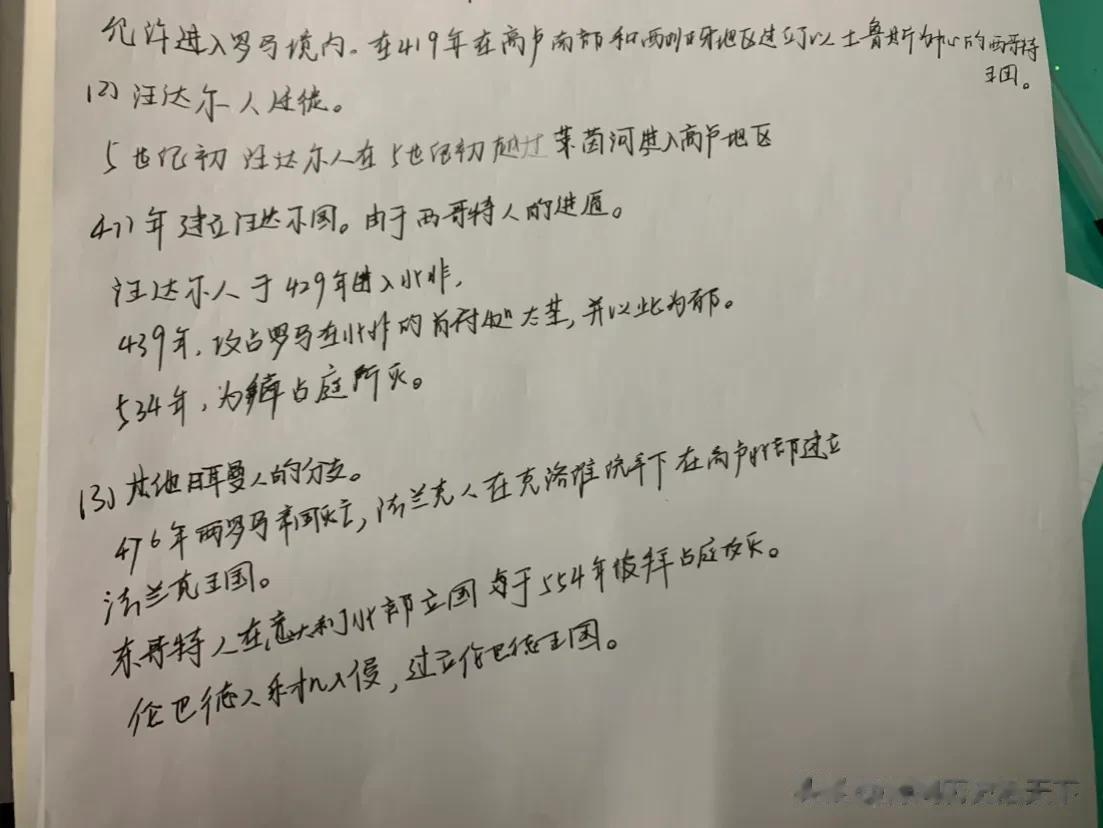 允许进入罗马境内。在419年在高卢南部和西班牙地区建立了以土鲁斯为中心的西哥特
王国。
(2) 汪达尔人迁徙。
5世纪初 汪达尔人在5世纪初越过莱茵河进入高卢地区
411年建立汪达尔国。由于西哥特人的进逼。
汪达尔人于429年进入北非,
439年,攻占罗马在北非的首府迦太基,并以此为都。
534年,为拜占庭所灭。
(3) 其他日耳曼人的分支。
476年西罗马帝国灭亡,法兰克人在克洛维统率下在高卢北部建立
法兰克王国。
东哥特人在意大利北部立国 与于554年被拜占庭攻灭。
伦巴德人乘机入侵,建立伦巴德王国。